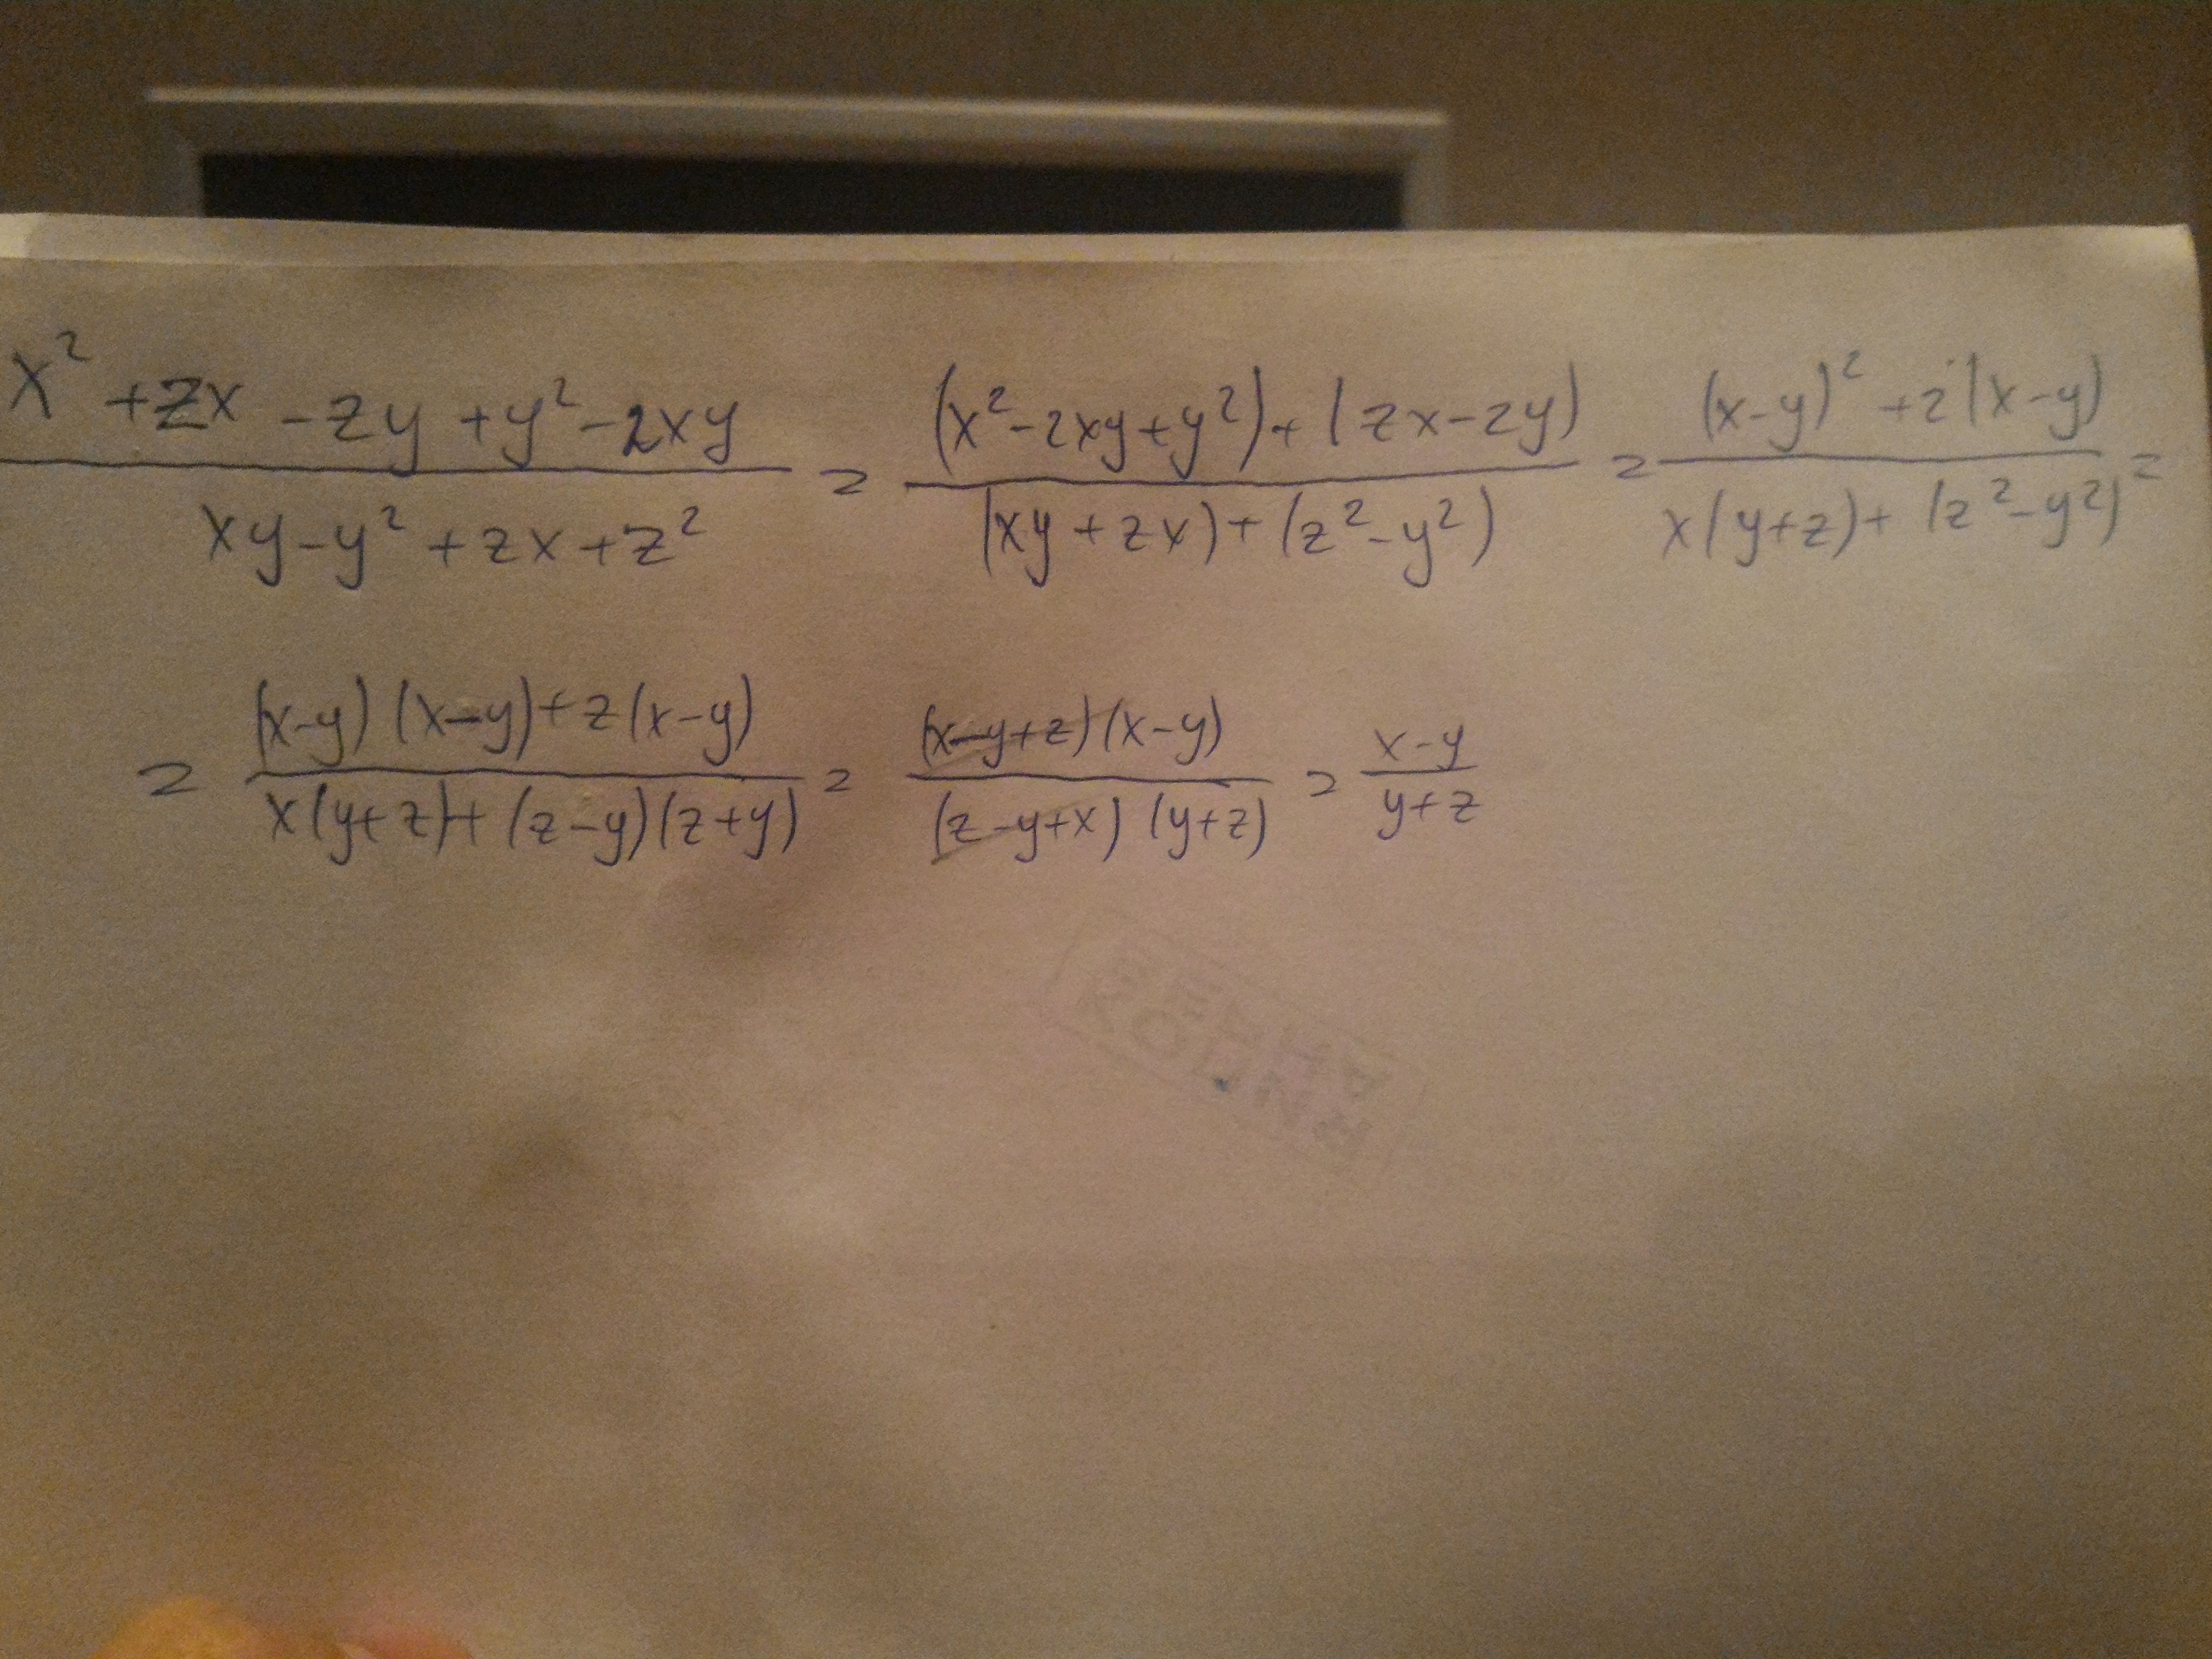 x² + zx - zy + y² - 2xy / xy - y² + zx + z² = (x² - 2xy + y²) + (zx - zy) / (xy + zx) + (z² - y²) = (x-y)² + z(x-y) / x(y+z) + (z² - y²) =
= (x-y)(x-y) + z(x-y) / x(y+z) + (z-y)(z+y) = (x-y+z)(x-y) / (z-y+x)(y+z) = x-y / y+z